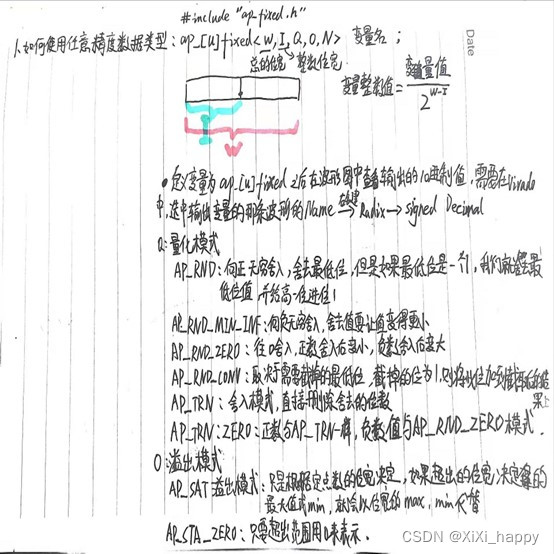 #include "ap_fixed.h"
1.如何使用任意精度数据类型：ap_[u]fixed<W,I,Q,O,N> 变量名；
总的位宽 整数位宽
变量整数值=变量值/2^(W-I)
I
W
Date
•定义变量为ap_[u]fixed之后在波形图中查看输出的10进制值，需要在Vivado
中，选中输出变量的那条波形的Name 右键→Radix→signed Decimal
Q：量化模式
AP_RND：向正无穷舍入，舍去最低位，但是如果最低位是一个1，我们就
低位值 并给高一位进位1
AP_RND_MIN_INF：向负无穷舍入，舍去值要让值变得更小
AP_RND_ZERO：往0舍入，正数舍入后变小，负数舍入后变大
AP_RND_CONV：取决于需要截掉的最低位，截掉的位为1，则将
果上
AP_TRN：舍入模式，直接删除舍去的位数
AP_TRN：ZERO：正数与AP_TRN一样，负数值与AP_RND_ZERO模式．
O：溢出模式
AP_SAT溢出模式：只是根据定点数的位宽决定，如果超出的位宽决定的
最大值或min，就会以位宽的max，min代替
AP_STA_ZERO：只要超出范围用0来表示．
CSDN @XiXi_happy